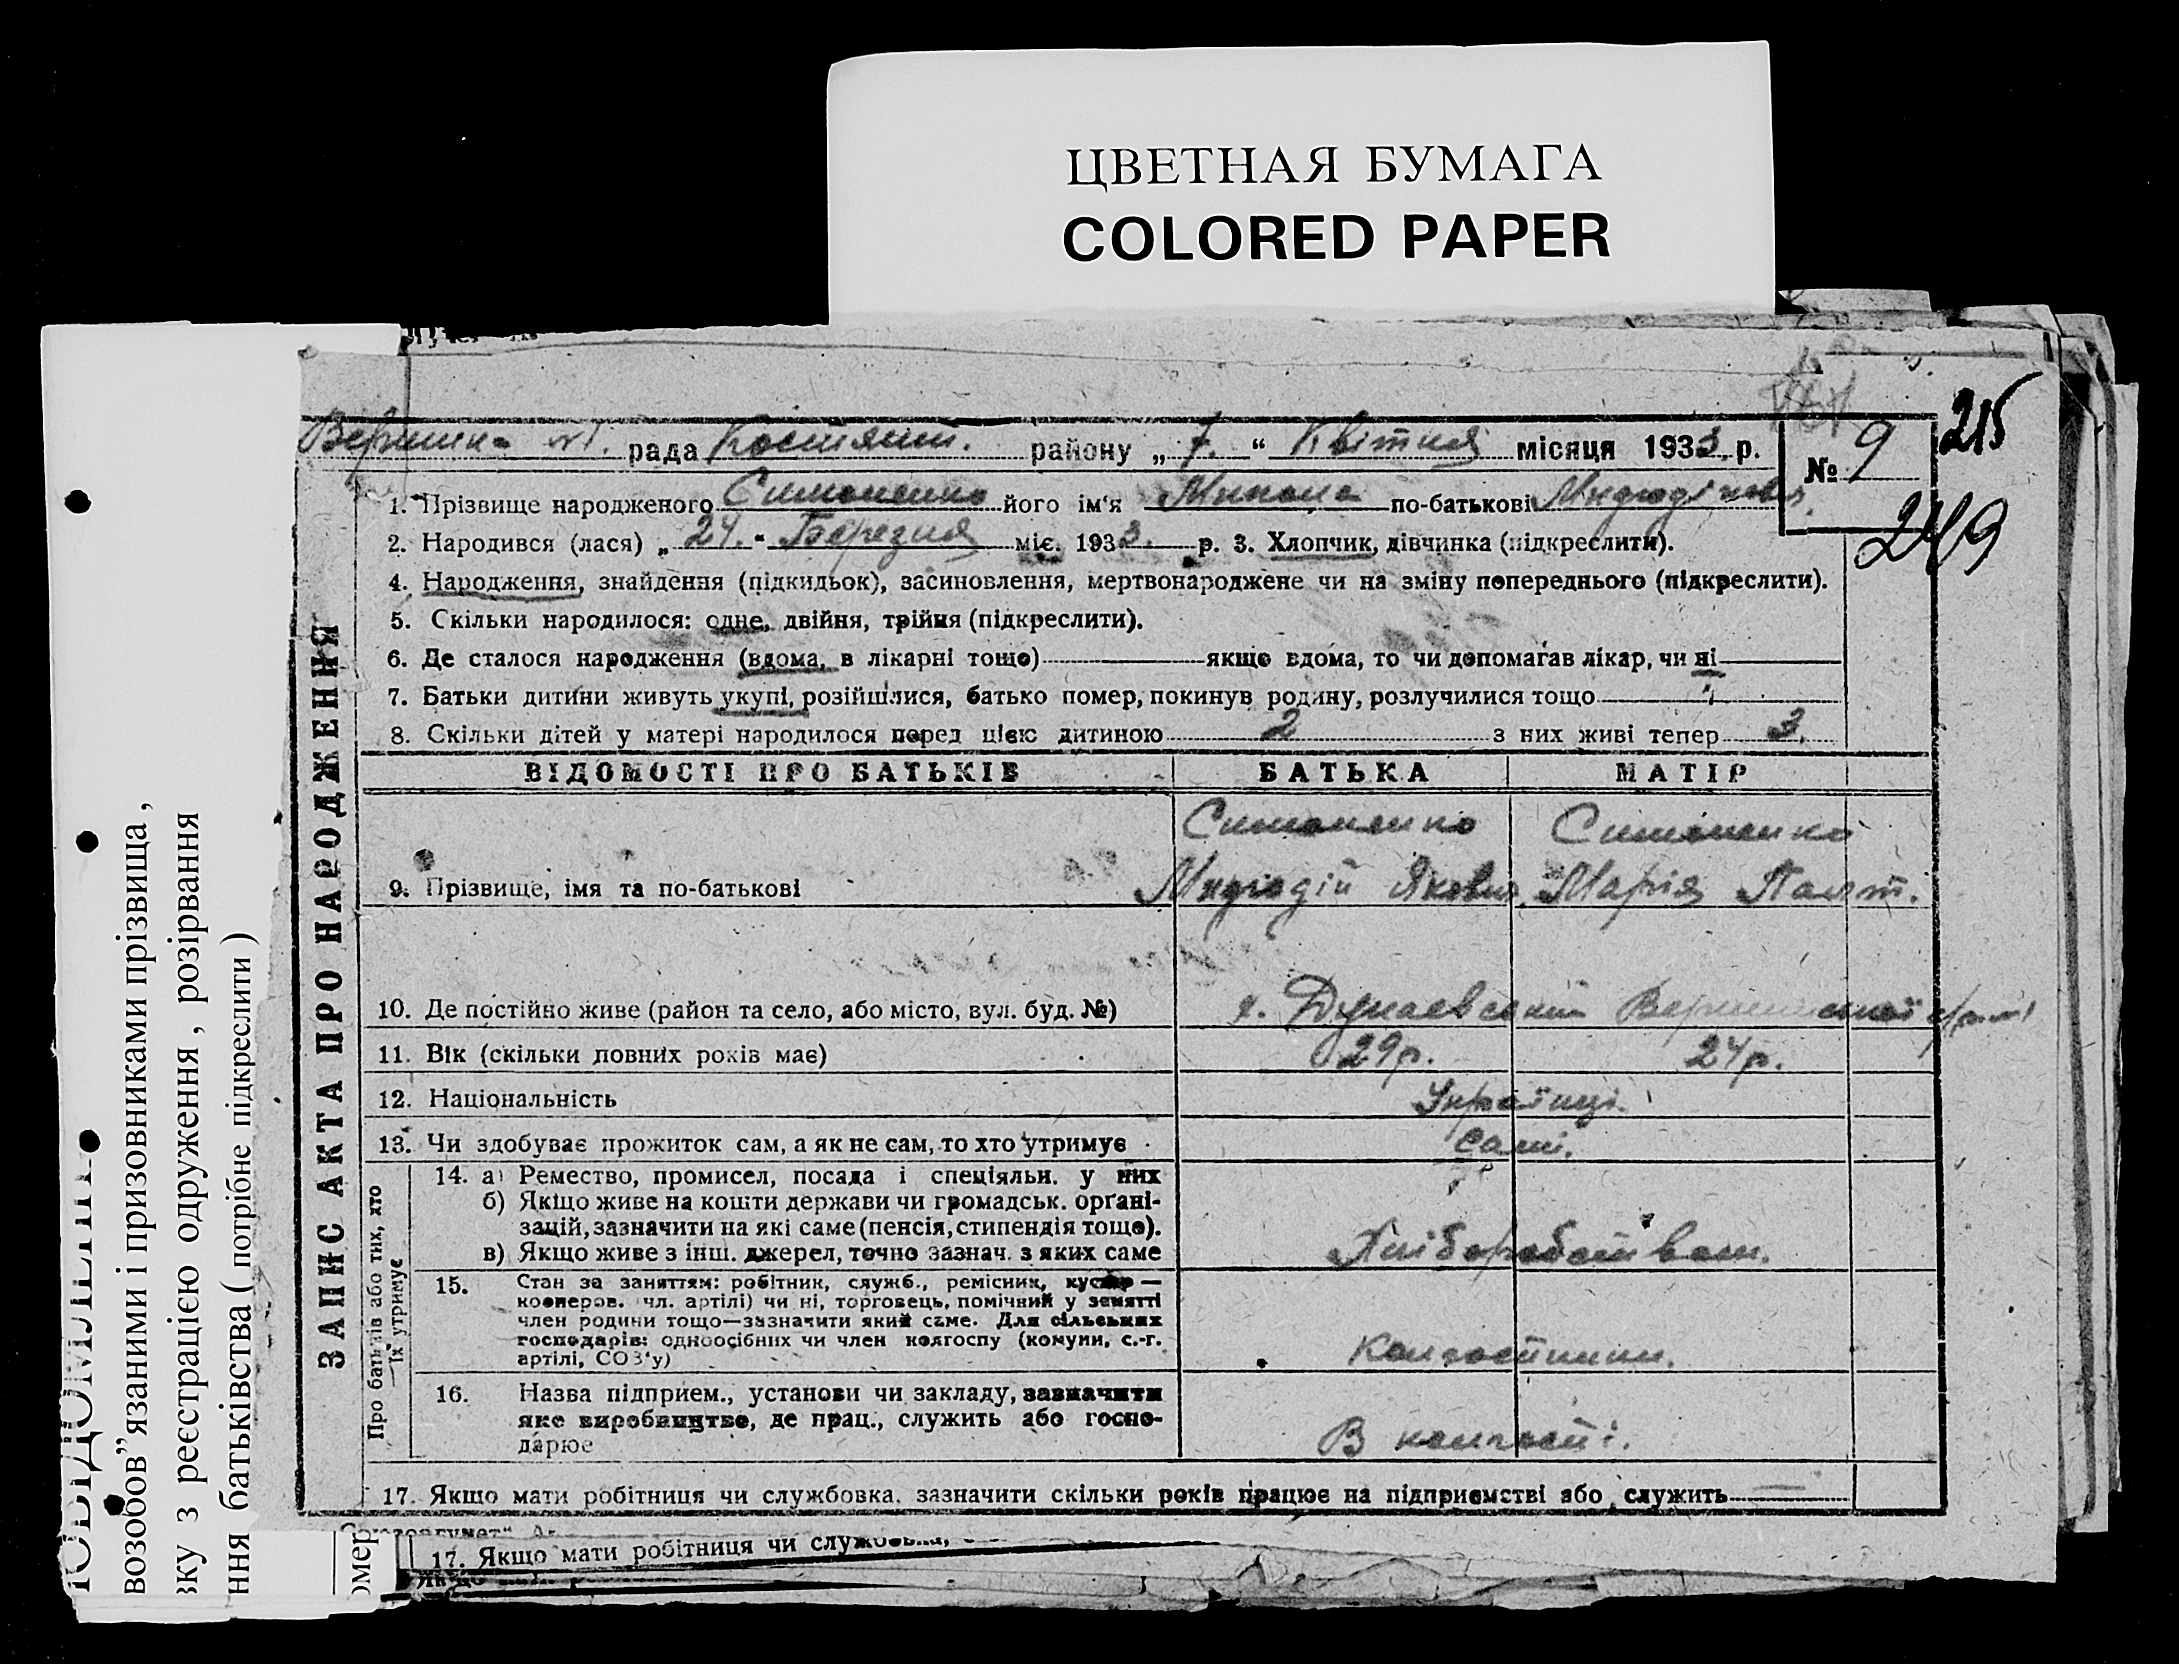 ЦВЕТНАЯ БУМАГА
COLORED PAPER
215
рада Костянт. району „ 7. “ Квітня місяця 1933. р.
№ 9
249
1. Прізвище народженого Симоненко його ім‘я Микола по-батькові
2. Народився (лася) „ 24. “ Березня міс. 1933. р. 3. Хлопчик, дівчинка (підкреслити).
4. Народження, знайдення (підкидьок), засиновлення, мертвонароджене чи на зміну попереднього (підкреслити).
5. Скільки народилося: одне, двійня, трійня (підкреслити).
6. Де сталося народження (вдома, в лікарні тощо) якщо вдома, то чи допомагав лікар, чи ні
7. Батьки дитини живуть укупі, розійшлися, батько помер, покинув родину, розлучилися тощо
8. Скільки дітей у матері народилося перед цією дитиною 2 з них живі тепер 3.
ЗАПИС АКТА ПРО НАРОДЖЕННЯ
ВІДОМОСТІ ПРО БАТЬКІВ БАТЬКА МАТІР
Симоненко Симоненко
9. Прізвище, імя та по-батькові Яковл. Марія
10. Де постійно живе (район та село, або місто, вул. буд. №) х. Дунаевський
11. Вік (скільки повних років має) 29р. 24р.
12. Національність Українці.
13. Чи здобуває прожиток сам, а як не сам, то хто утримує самі.
Про батьків або тих, хто їх утримує
14. а) Ремество, промисел, посада і спеціяльн. у них
б) Якщо живе на кошти держави чи громадськ. орґані-
зацій, зазначити на які саме (пенсія, стипендія тощо).
в) Якщо живе з інш. джерел, точно зазнач. з яких саме Хліборобством.
15. Стан за заняттям: робітник, служб., ремісник, кустар —
кооперов. чл. артілі) чи ні, торговець, помічний у занятті
член родини тощо—зазначити який саме. Для сільських
господарів: одноосібних чи член колгоспу (комуни, с.-г.
артілі, СОЗ‘у) Колгоспники.
16. Назва підприєм., установи чи закладу, зазначити
яке виробництво, де прац., служить або госпо-
дарює В колгоспі.
17. Якщо мати робітниця чи службовка, зазначити скільки років працює на підприємстві або служить
17. Якщо мати робітниця чи службовка,
возобов”язаними і призовниками прізвища,
зку з реєстрацією одруження, розірвання
ння батьківства ( потрібне підкреслити )
омер